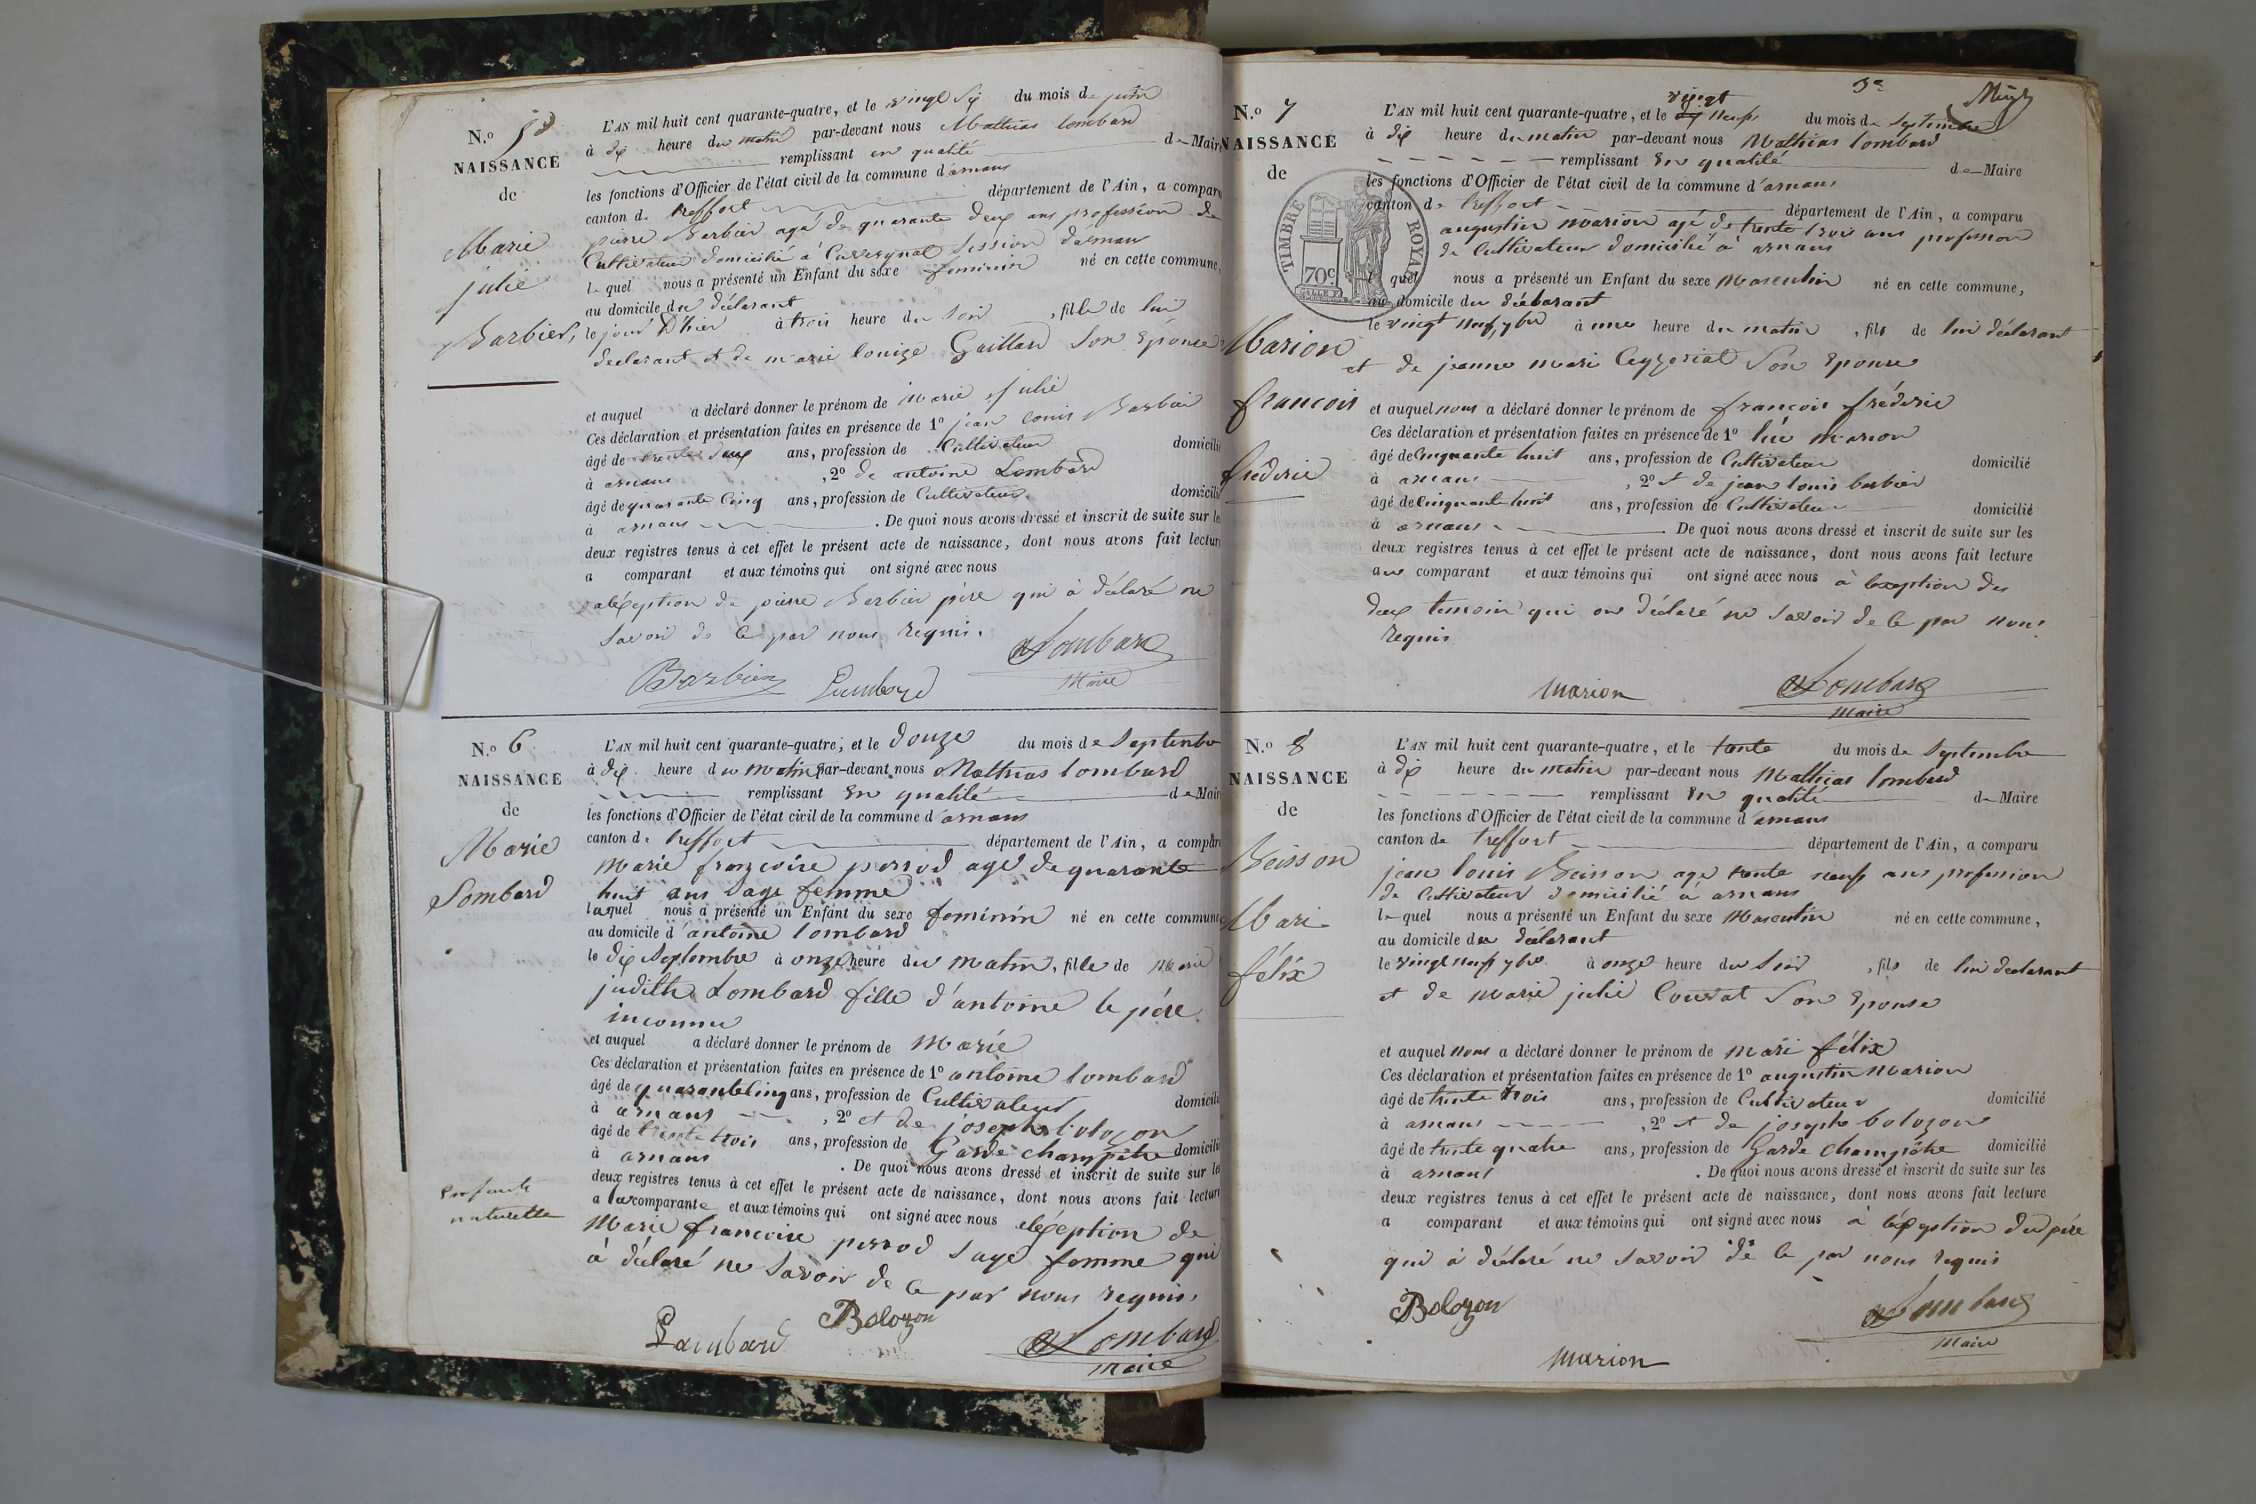 N.o 5
NAISSANCE
de
Marie
julie
Barbier,
L'AN mil huit cent quarante-quatre, et le vingt Six du mois de juin
à dix heure du matin par-devant nous Mathias lombard
remplissant en qualité de Maire
les fonctions d'Officier de l'état civil de la commune d'arnans
canton de treffort département de l'Ain, a comparu
pierre Barbier agé de quarante deux ans profession de
Cultivateur domicilié à Session d'arnans
lequel nous a présenté un Enfant du sexe feminin né en cette commune,
au domicile du déclarant
le jour d'hier à trois heure du Soir, fille de lui
declarant et de marie louize Gaillard Son Epouse
et auquel a déclaré donner le prénom de marie julie
Ces déclaration et présentation faites en présence de 1o jean louis Barbier
âgé de trente deux ans, profession de Cultivateur domicilié
à arnans, 2o de antoine Lombard
âgé de quarante Cinq ans, profession de Cultivateur domicilié
à arnans. De quoi nous avons dressé et inscrit de suite sur les
deux registres tenus à cet effet le présent acte de naissance, dont nous avons fait lecture
a comparant et aux témoins qui ont signé avec nous
aléxeption de pierre Barbier père qui à déclaré ne
savoir de Ce par nous requis.
Barbier Lambard Lombard
Maire
N.o 6
NAISSANCE
de
Marie
Lombard
L'AN mil huit cent quarante-quatre, et le douze du mois de Septembre
à dix heure du matin par-devant nous Mathias lombard
remplissant En qualité de Maire
les fonctions d'Officier de l'état civil de la commune d'arnans
canton de treffort département de l'Ain, a comparu
Marie françoise perrod agé de quarante
huit ans Sage femme
laquel nous a présenté un Enfant du sexe feminin né en cette commune
au domicile d'antoine lombard
le dix Septembre à onze heure du matin, fille de Marie
judith Lombard fille d'antoine le pére
inconnu
et auquel a déclaré donner le prénom de Marie
Ces déclaration et présentation faites en présence de 1o antoine lombard
âgé de quarante Cinq ans, profession de Cultivateur domicilié
à arnans, 2o et de joseph bolozon
âgé de trente trois ans, profession de Garde champétre domicilié
à arnans. De quoi nous avons dressé et inscrit de suite sur les
deux registres tenus à cet effet le présent acte de naissance, dont nous avons fait lecture
a la comparante et aux témoins qui ont signé avec nous aléxeption de
Marie francoise perrod Sage femme qui
à déclaré ne Savoir de Ce par nous requis.
Enfante
naturelle
Lambard Bolozon Lombard
Maire
N.o 7
NAISSANCE
de
Marion
francois
frédéric
TIMBRE ROYAL
70c
L'AN mil huit cent quarante-quatre, et le vingt neuf du mois de Septembre
à dix heure du matin par-devant nous Mathias lombard
remplissant En qualité de Maire
les fonctions d'Officier de l'état civil de la commune d'arnans
canton de treffort département de l'Ain, a comparu
augustin marion agé de trente trois ans profession
de Cultivateur domicilié à arnans
lequel nous a présenté un Enfant du sexe Masculin né en cette commune,
au domicile du déclarant
le vingt neuf 7bre à une heure du matin, fils de lui déclarant
et de jeanne mari Ceyzeriat Son Epouse
et auquel nous a déclaré donner le prénom de françois fréderic
Ces déclaration et présentation faites en présence de 1o marion
âgé de Cinquante huit ans, profession de Cultivateur domicilié
à arnans, 2o et de jean louis barbier
âgé de Cinquante huit ans, profession de Cultivateur domicilié
à arnans. De quoi nous avons dressé et inscrit de suite sur les
deux registres tenus à cet effet le présent acte de naissance, dont nous avons fait lecture
au comparant et aux témoins qui ont signé avec nous à lexeption des
deux temoin qui on déclaré ne Savoir de Ce par nous
requis
Marion Lombard
Maire
N.o 8
NAISSANCE
de
Beisson
Mari
félix
L'AN mil huit cent quarante-quatre, et le trente du mois de Septembre
à dix heure du matin par-devant nous Mathias lombard
remplissant En qualité de Maire
les fonctions d'Officier de l'état civil de la commune d'arnans
canton de treffort département de l'Ain, a comparu
jean louis Beisson age trente neuf ans profession
de Cultivateur domicilié à arnans
lequel nous a présenté un Enfant du sexe Masculin né en cette commune,
au domicile du déclarant
le vingt neuf 7bre à onze heure du Soir, fils de lui declarant
et de marie julie Convat Son Epouse
et auquel nous a déclaré donner le prénom de mari félix
Ces déclaration et présentation faites en présence de 1o augustin Marion
âgé de trente trois ans, profession de Cultivateur domicilié
à arnans, 2o et de joseph bolozon
âgé de trente quatre ans, profession de Garde champétre domicilié
à arnans. De quoi nous avons dressé et inscrit de suite sur les
deux registres tenus à cet effet le présent acte de naissance, dont nous avons fait lecture
a comparant et aux témoins qui ont signé avec nous à léxeption du pére
qui à déclaré ne savoir de Ce par nous requis
Bolozon Lombard
Maire
Marion